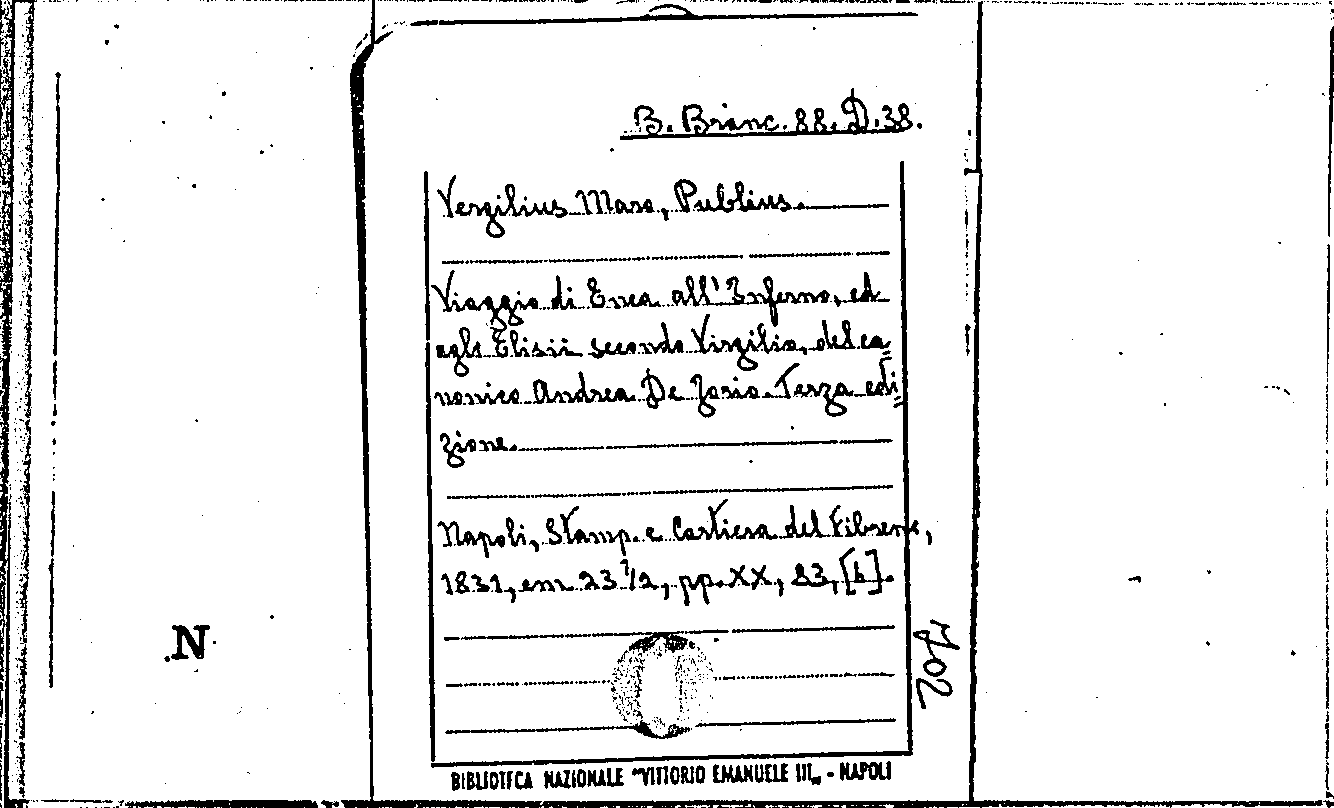 B. Branc. 88. D. 38.
Vergilius Maro, Publius.
Viaggio di Enea all'Inferno, ed
agli Elisii secondo Virgilio, del ca=
nonico Andrea De Jorio. Terza edi=
zione.
Napoli, Stamp. e Cartiera del Fibreno,
1831, cm 23 1/2, pp. XX, 83, [6].
N
BIBLIOTECA NAZIONALE "VITTORIO EMANUELE III„ - NAPOLI